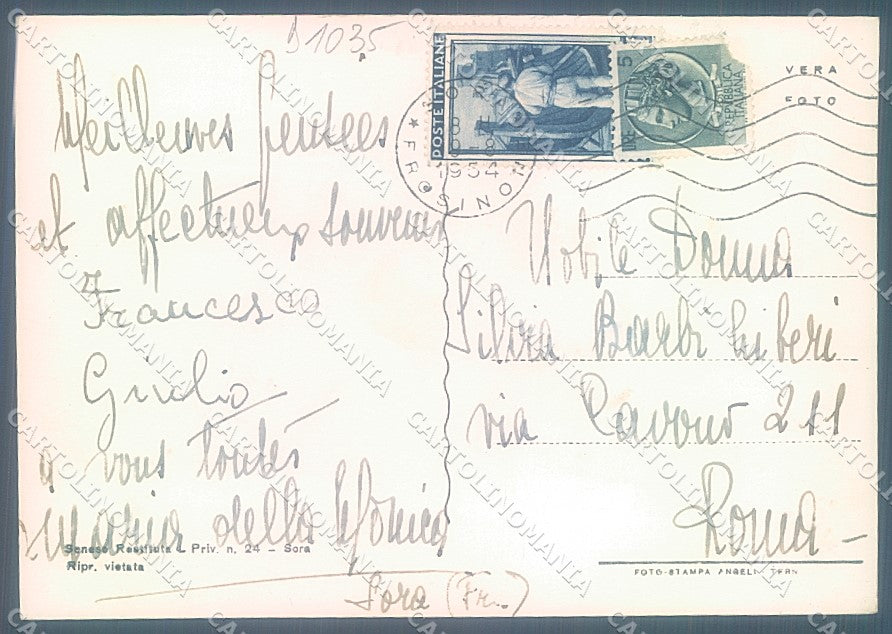 B1035
POSTE ITALIANE
5
LIRE
REPUBBLICA
ITALIANA
FROSINONE
1954
VERA
FOTO
Meilleures pensées
et affectueux souvenirs
Francesco
Giulio
à vous toutes
Maria della Monica
Sora (Fr.)
Nobile Donna
Silvia Barbi Liberi
via Cavour 211
Roma
Senese Restituta - Priv. n. 24 - Sora
Ripr. vietata
FOTO-STAMPA ANGELI TERNI
CARTOLINOMANIA